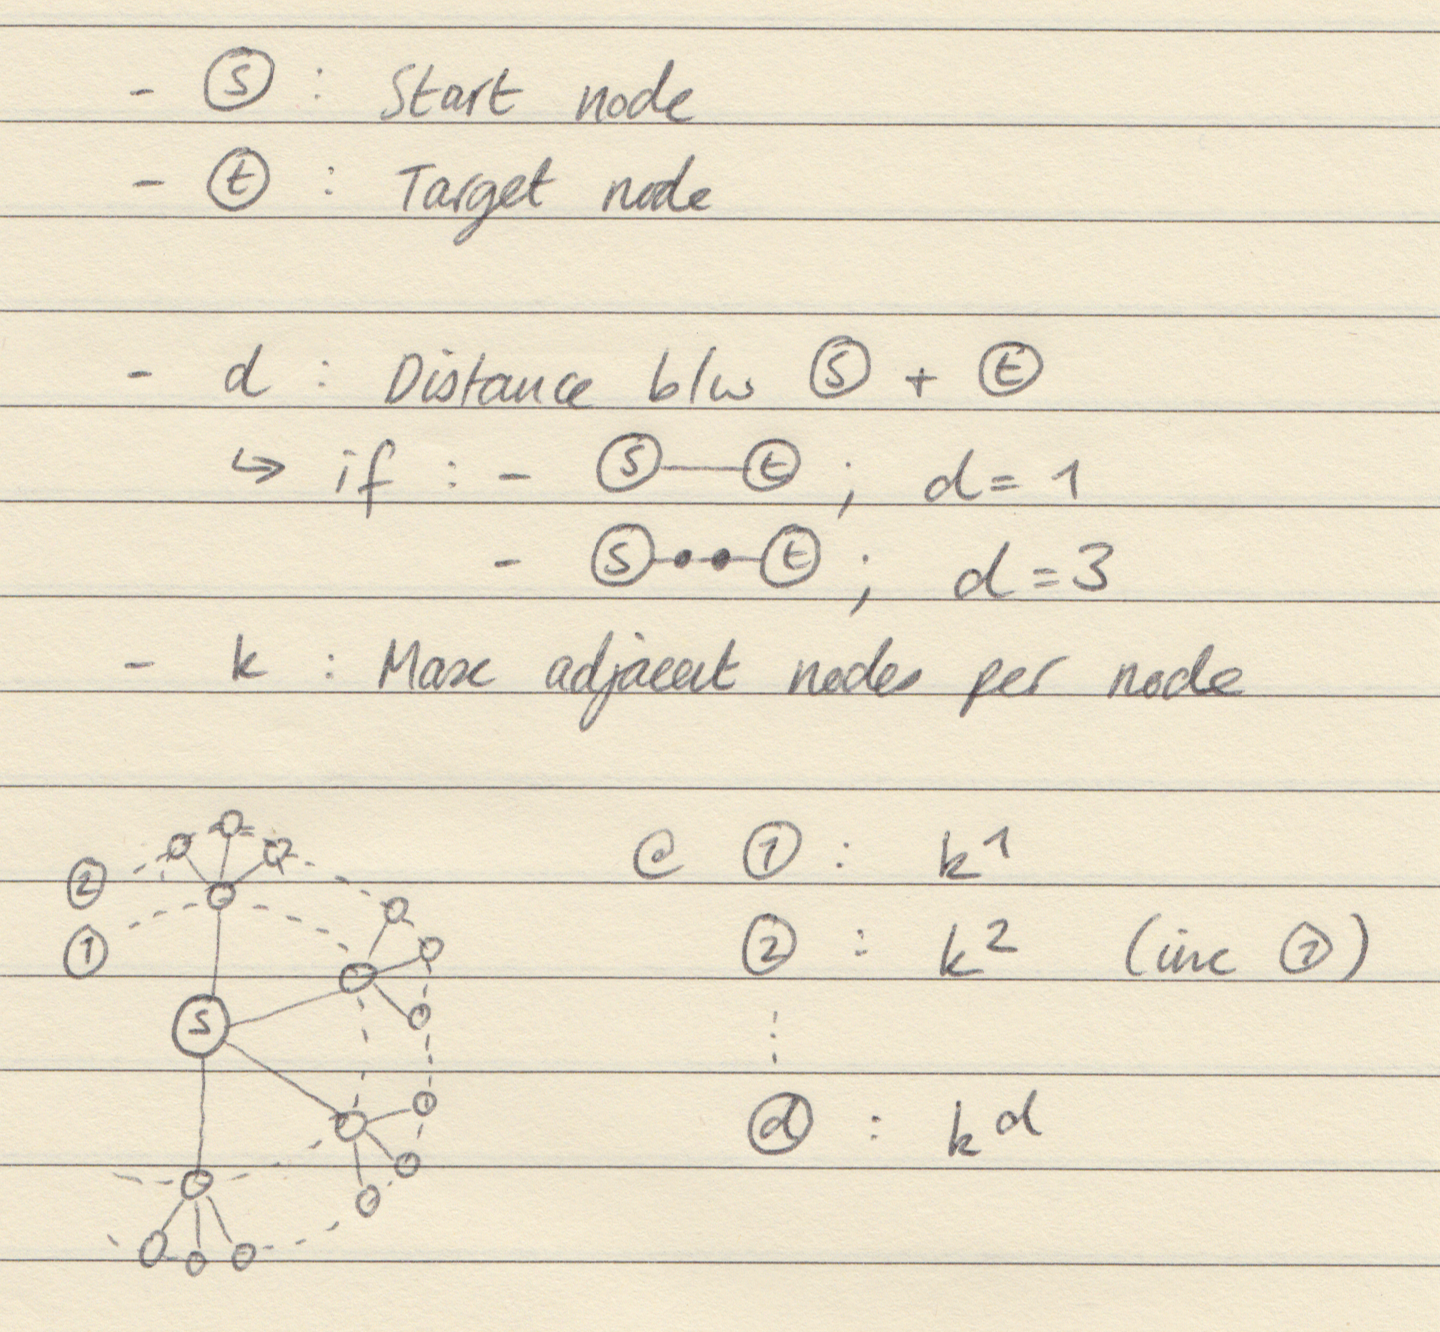 - s : Start node
- t : Target node
- d : Distance b/w s + t
↳ if : - s t ; d = 1
- s t ; d = 3
- k : Max adjacent nodes per node
@ 1 : k^1
2
2 : k^2 (inc 1)
1
s
⋮
d : k^d